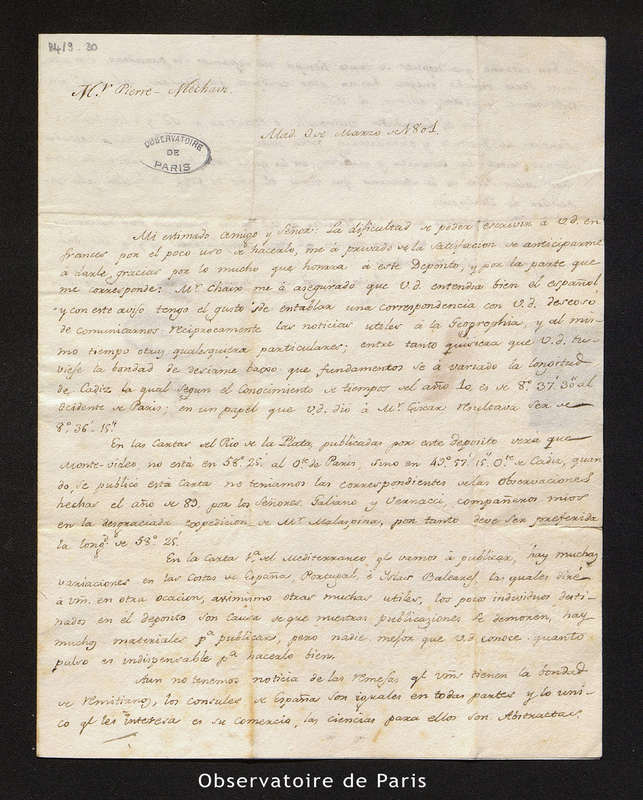 B4/9. 30
Mr. Pierre-Mechain
OBSERVATOIRE
DE
PARIS
Mad. de Marzo 1801.
Mi estimado amigo y Señor: La dificultad de poder escrivir á Vd. en
frances por el poco uso de hacerlo, me á privado de la satisfacion de anticiparme
á darle gracias por lo mucho que honrra á este Depósito, y por la parte que
me corresponde: Mr. Chaix me á asegurado que V.d. entendia bien el español
y con este aviso tengo el gusto de entablar una correspondencia con V.d. deseoso
de comunicarnos reciprocamente las noticias utiles á la Geographia, y al mis-
mo tiempo otras qualesquiera particulares; entre tanto quisiera que V.d. tu-
viese la bondad de desirme baxo que fundamentos se á variado la longitud
de Cadiz la qual segun el Conocimiento de tiempos del año 10, es de 8.° 37.' 30" al
Occidente de Paris; en un papel que V.d. dió á Mr. Giscar resultava ser de
8.° 36.' 15."
En las Cartas del Rio de la Plata, publicadas por este deposito verá que
Monte-video, no está en 58.° 25.' al O.te de Paris, sino en 49.° 57.' 15." O.te de Cadiz, quan
do se publicó esta Carta no teniamos las correspondientes de las observaciones
hechas el año de 89, por los Señores Galiano y Vernacci, compañeros mios
en la desgraciada expedicion de Mr. Malaspina, por tanto deve ser preferida
la long.d de 58.° 25.
En la Carta 1.a del Mediterraneo ql vamos á publicar, hay muchas
variaciones en las Costas de España, Portugal, é Yslas Baleares, la quales diré
á Vm. en otra ocacion, assimimo otras muchas utiles, los poco individuos desti-
nados en el deposito son causa de que nuestras publicaziones se demoren, hay
muchos materiales p.a publicar, pero nadie mejor que V.d conoce quanto
pulso es indispensable p.a hacerlo bien.
Aun no tenemos noticia de las remesas ql vms tienen la bondad
de remitirnos, los consules de España son iguales en todas partes y lo uni-
co ql les interesa es su comercio, las ciencias para ellos son Abstractas.
Observatoire de Paris